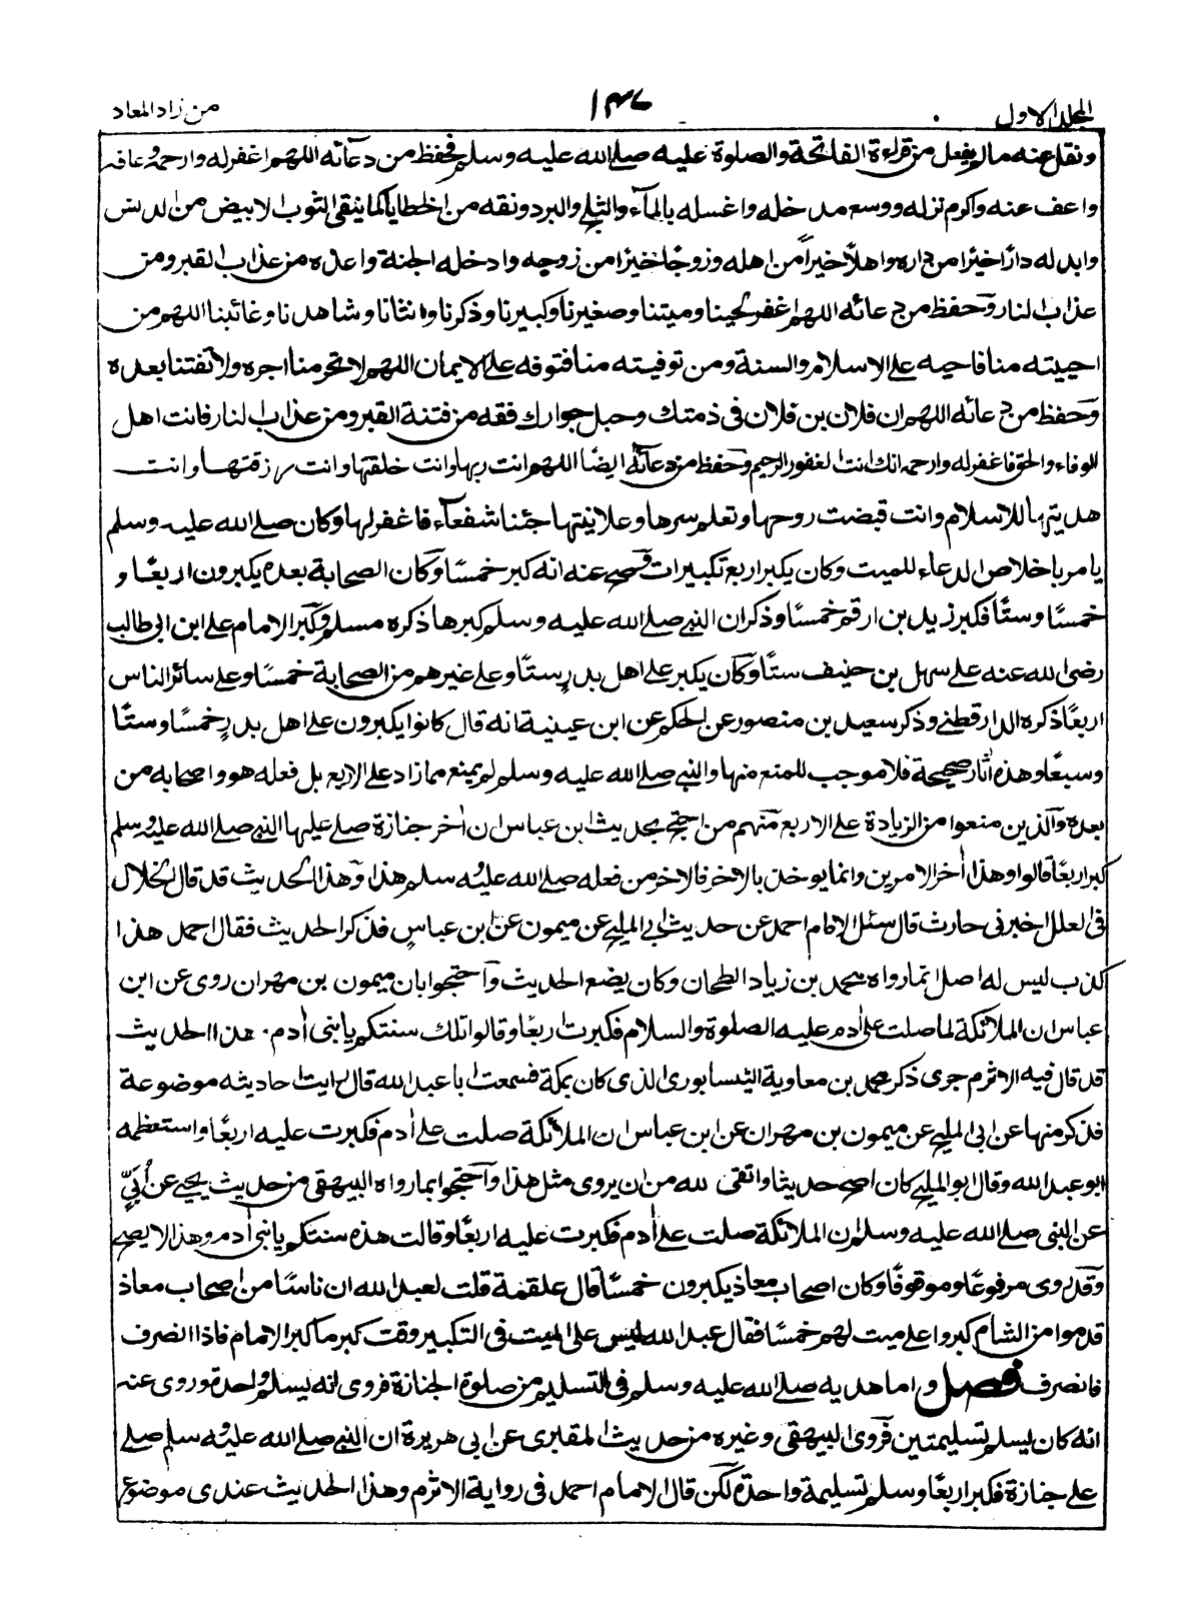 المجلد الاول
١٤٧
من زاد المعاد
ونقل عنه مالم يفعل من قراءة الفاتحة والصلوة عليه صلے الله عليه وسلم فحفظ من دعآئه اللهم اغفر له وارحمه وعافه
واعف عنه واكرم نزله ووسع مدخله واغسله بالمآء والثلج والبرد ونقه من الخطايا كما ينقى الثوب الابيض من الدنس
وابدله دارًا خيرًا من داره واهلًا خيرًا من اهله وزوجًا خيرًا من زوجه وادخله الجنة واعذه من عذاب القبر ومن
عذاب النار وحفظ من دعائه اللهم اغفر لحينا وميتنا وصغيرنا وكبيرنا وذكرنا وانثانا وشاهدنا وغائبنا اللهم من
احييته منا فاحيه على الاسلام والسنة ومن توفيته منا فتوفه على الايمان اللهم لا تحرمنا اجره ولا تفتنا بعده
وحفظ من دعائه اللهم ان فلان بن فلان فى ذمتك وحبل جوارك فقه من فتنة القبر ومن عذاب النار فانت اهل
الوفاء والحق فاغفر له وارحمه انك انت الغفور الرحيم وحفظ من دعآئه ايضًا اللهم انت ربها وانت خلقتها وانت رزقتها وانت
هديتها للاسلام وانت قبضت روحها وتعلم سرها وعلانيتها جئنا شفعآء فاغفر لها وكان صلے الله عليه وسلم
يامر باخلاص الدعاء للميت وكان يكبر اربع تكبيرات وصح عنه انه كبر خمسًا وكان الصحابة بعده يكبرون اربعًا و
خمسًا وستًا فكبر زيد بن ارقم خمسًا وذكر ان النبي صلے الله عليه وسلم كبرها ذكره مسلم وكبر الامام على ابن ابى طالب
رضى الله عنه على سهل بن حنيف ستًا وكان يكبر على اهل بدر ستًا وعلى غيرهم من الصحابة خمسًا وعلى سائر الناس
اربعًا ذكره الدارقطني وذكر سعيد بن منصور عن الحكم عن ابن عيينة انه قال كانوا يكبرون على اهل بدر خمسًا وستًا
وسبعًا وهذه أثار صحيحة فلا موجب للمنع منها والنبي صلے الله عليه وسلم لم يمنع مما زاد على الاربع بل فعله هو واصحابه من
بعده والذين منعوا من الزيادة على الاربع منهم من احتج بحديث ابن عباس ان أخر جنازة صلے عليها النبي صلے الله عليه وسلم
كبر اربعًا قالوا وهذا أخر الامرين وانما يوخذ بالاخر فالاخر من فعله صلے الله عليه وسلم هذا وهذا الحديث قد قال الخلال
فى العلل اخبرنى حارث قال سئل الامام احمد عن حديث ابى المليح عن ميمون عن ابن عباس فذكر الحديث فقال احمد هذا
كذب ليس له اصل انما رواه محمد بن زياد الطحان وكان يضع الحديث واحتجوا بان ميمون بن مهران روى عن ابن
عباس ان الملائكة لما صلت على أدم عليه الصلوة والسلام فكبرت اربعًا وقالوا تلك سنتكم يا بنى أدم. هذا الحديث
قد قال فيه الاثرم جرى ذكر محمد بن معاوية النيسابورى الذى كان بمكة فسمعت ابا عبد الله قال رايت احاديثه موضوعة
فذكر منها عن ابى المليح عن ميمون بن مهران عن ابن عباس ان الملائكة صلت على أدم فكبرت عليه اربعًا واستعظمه
ابو عبد الله وقال ابو المليح كان اصح حديثًا واتقى لله من ان يروى مثل هذا واحتجوا بما رواه البيهقى من حديث يحيى عن أبيّ
عن النبى صلے الله عليه وسلم ان الملائكة صلت على أدم فكبرت عليه اربعًا وقالت هذه سنتكم يا بنى أدم وهذا لا يصح
وقد روى مرفوعًا وموقوفًا وكان اصحاب معاذ يكبرون خمسًا قال علقمة قلت لعبد الله ان ناسًا من اصحاب معاذ
قدموا من الشام كبروا على ميت لهم خمسًا فقال عبد الله ليس على الميت فى التكبير وقت كبر ما كبر الامام فاذا انصرف
فانصرف فصل واما هديه صلے الله عليه وسلم فى التسليم من صلوة الجنازة فروى انه يسلم واحدة وروى عنه
انه كان يسلم تسليمتين فروى البيهقى وغيره من حديث المقبرى عن ابى هريرة ان النبي صلے الله عليه وسلم صلے
على جنازة فكبر اربعًا وسلم تسليمة واحدة لكن قال الامام احمد فى رواية الاثرم وهذا الحديث عندى موضوع